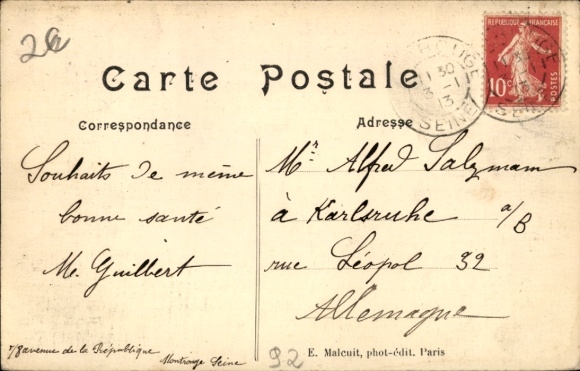 2a
RÉPUBLIQUE FRANÇAISE
10c
POSTES
ROUGE
30
-1
13
SEINE
Carte Postale
Correspondance
Adresse
Souhaits de même
bonne santé
Me Guilbert
78 avenue de la République
Montrouge Seine
Mr Alfred Salzmann
à Karlsruhe a/B
rue Léopol 32
Allemagne
92
E. Malcuit, phot-édit. Paris